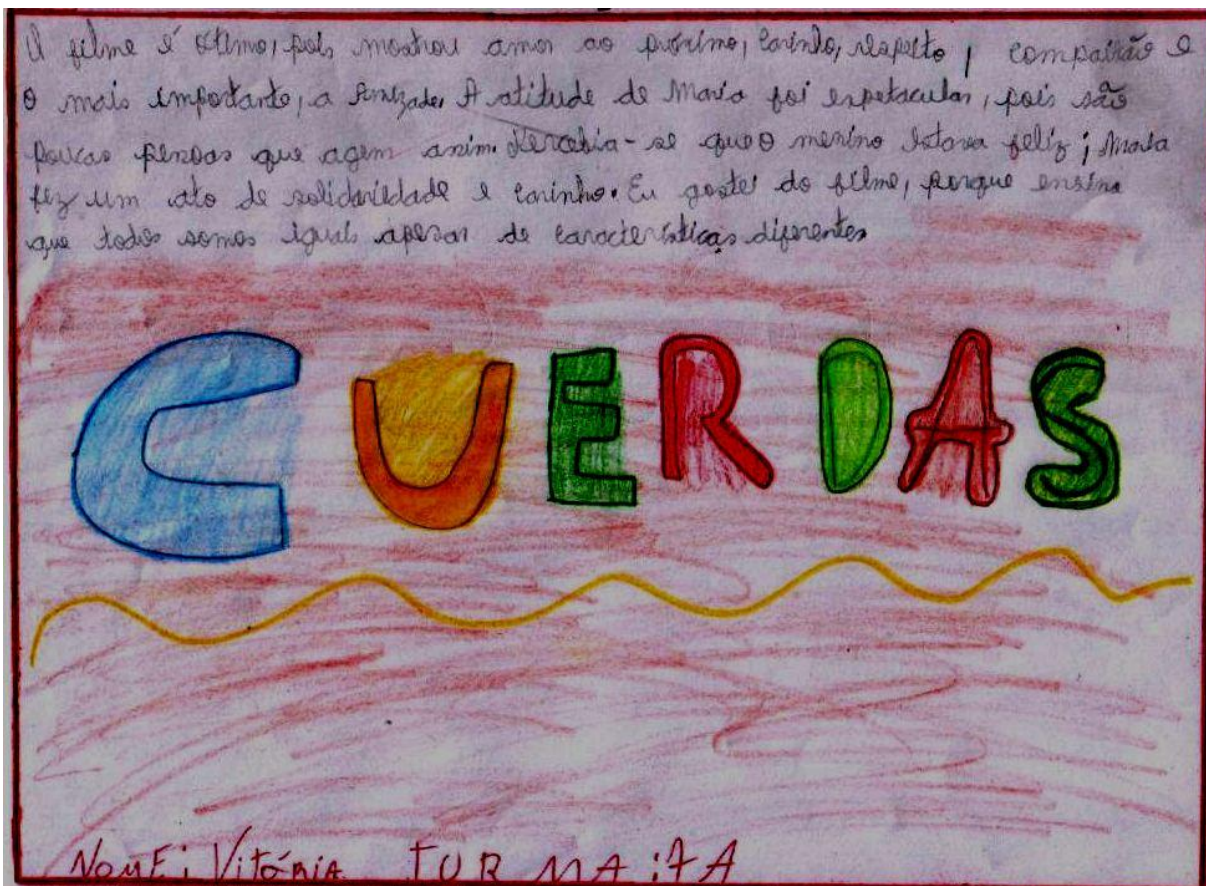 O filme é ótimo, pois mostrou amor ao próximo, carinho, respeito, compaixão e
o mais importante, a Amizade. A atitude de Maria foi espetacular, pois são
poucas pessoas que agem assim. Percebia-se que o menino estava feliz; Maria
fez um ato de solidariedade e carinho. Eu gostei do filme, porque ensina
que todos somos iguais apesar de características diferentes
CUERDAS
NOME: VITÓRIA TURMA: 7A